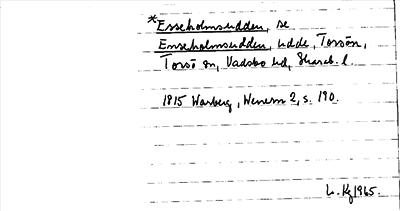 *Esseholmsudden, se
Enseholmsudden, udde, Torsön,
Torsö sn, Vadsbo hd, Skarab. l.
1815 Warberg, Wenern 2, s. 190.
L. Kg 1965.